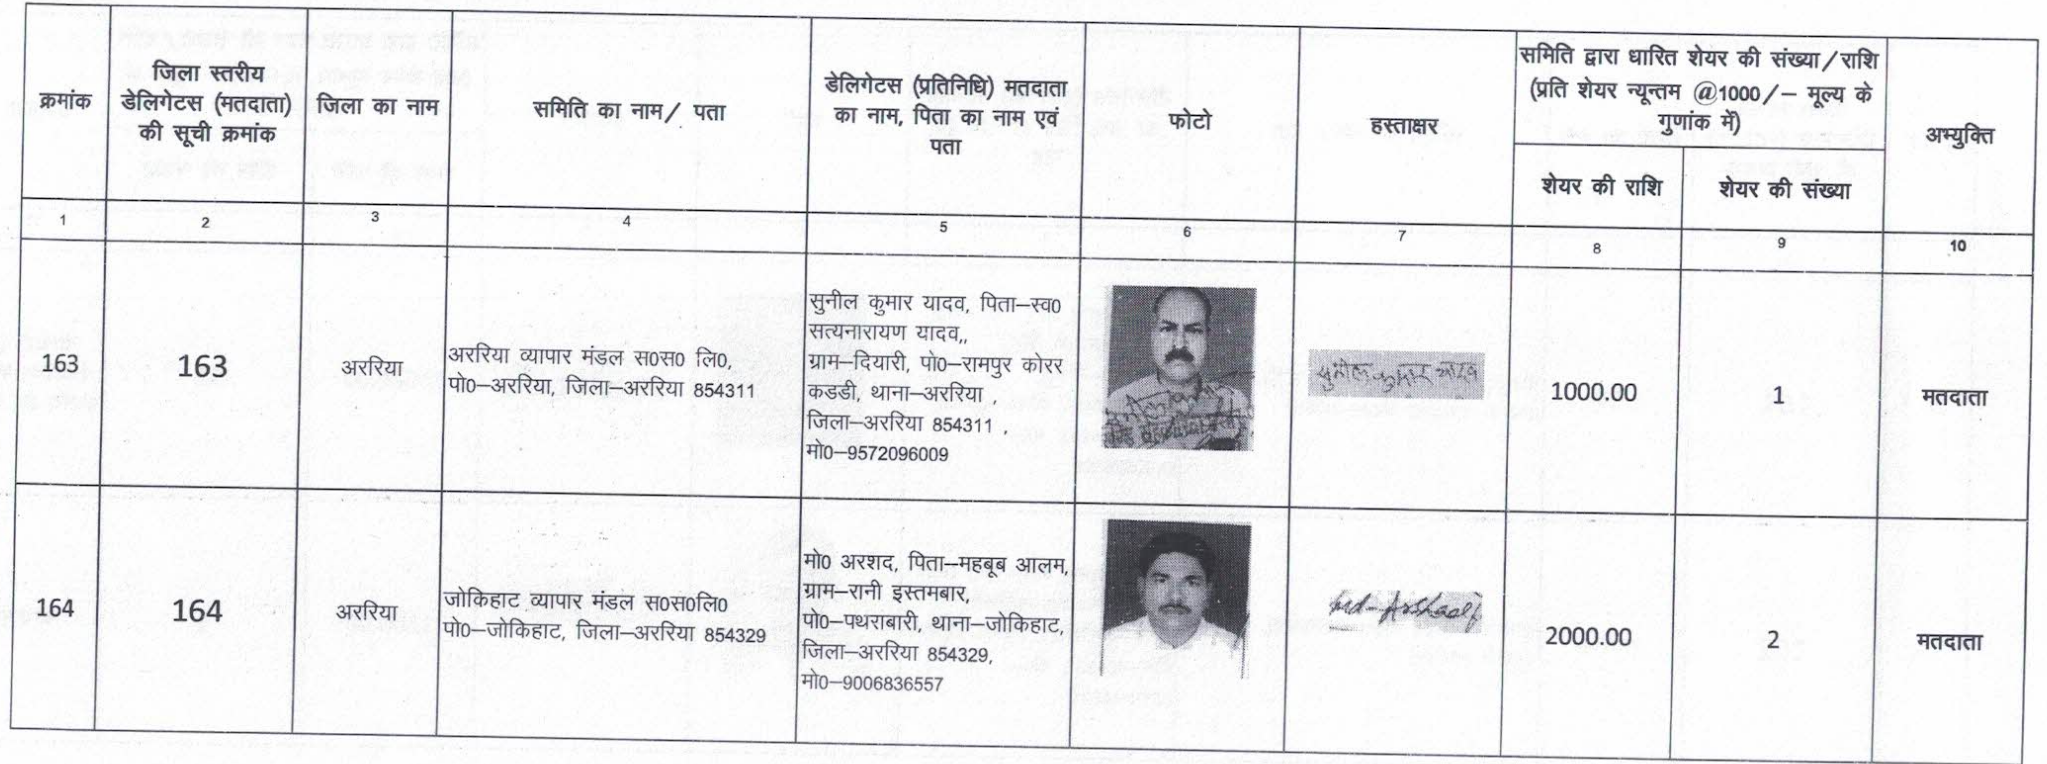 क्रमांक
जिला स्तरीय
डेलिगेटस (मतदाता)
की सूची क्रमांक
जिला का नाम
समिति का नाम/ पता
डेलिगेटस (प्रतिनिधि) मतदाता
का नाम, पिता का नाम एवं
पता
फोटो
हस्ताक्षर
समिति द्वारा धारित शेयर की संख्या/राशि
(प्रति शेयर न्यून्तम @1000/– मूल्य के
गुणांक में)
शेयर की राशि
शेयर की संख्या
अभ्युक्ति
1
2
3
4
5
6
7
8
9
10
163
163
अररिया
अररिया व्यापार मंडल स0स0 लि0
पो0–अररिया, जिला–अररिया 854311
सुनील कुमार यादव, पिता–स्व0
सत्यनारायण यादव,,
ग्राम–दियारी, पो0–रामपुर कोरर
कडडी, थाना–अररिया
जिला–अररिया 854311
मो0–9572096009
सुनील कुमार यादव
1000.00
1
मतदाता
164
164
अररिया
जोकिहाट व्यापार मंडल स0स0लि0
पो0–जोकिहाट, जिला–अररिया 854329
मो0 अरशद, पिता–महबूब आलम,
ग्राम–रानी इस्तमबार,
पो0–पथराबारी, थाना–जोकिहाट,
जिला–अररिया 854329,
मो0–9006836557
Md-Arshad
2000.00
2
मतदाता